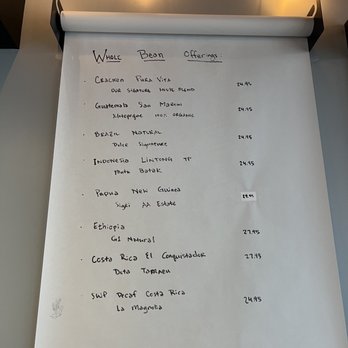 Whole Bean Offerings
· Pura Vita 24.95
Our Signature House Blend
· Guatemala San Marcos 24.95
100% Organic
· Brazil Natural 24.95
Dulce Signature
· Indonesia Lintong TP 24.95
Batak
· Papua New Guinea
Sigri AA Estate
· Ethiopia 27.95
G1 Natural
· Costa Rica El Conquistador 27.95
Dota Tarrazu
· SWP Decaf Costa Rica 24.95
La Magnolia